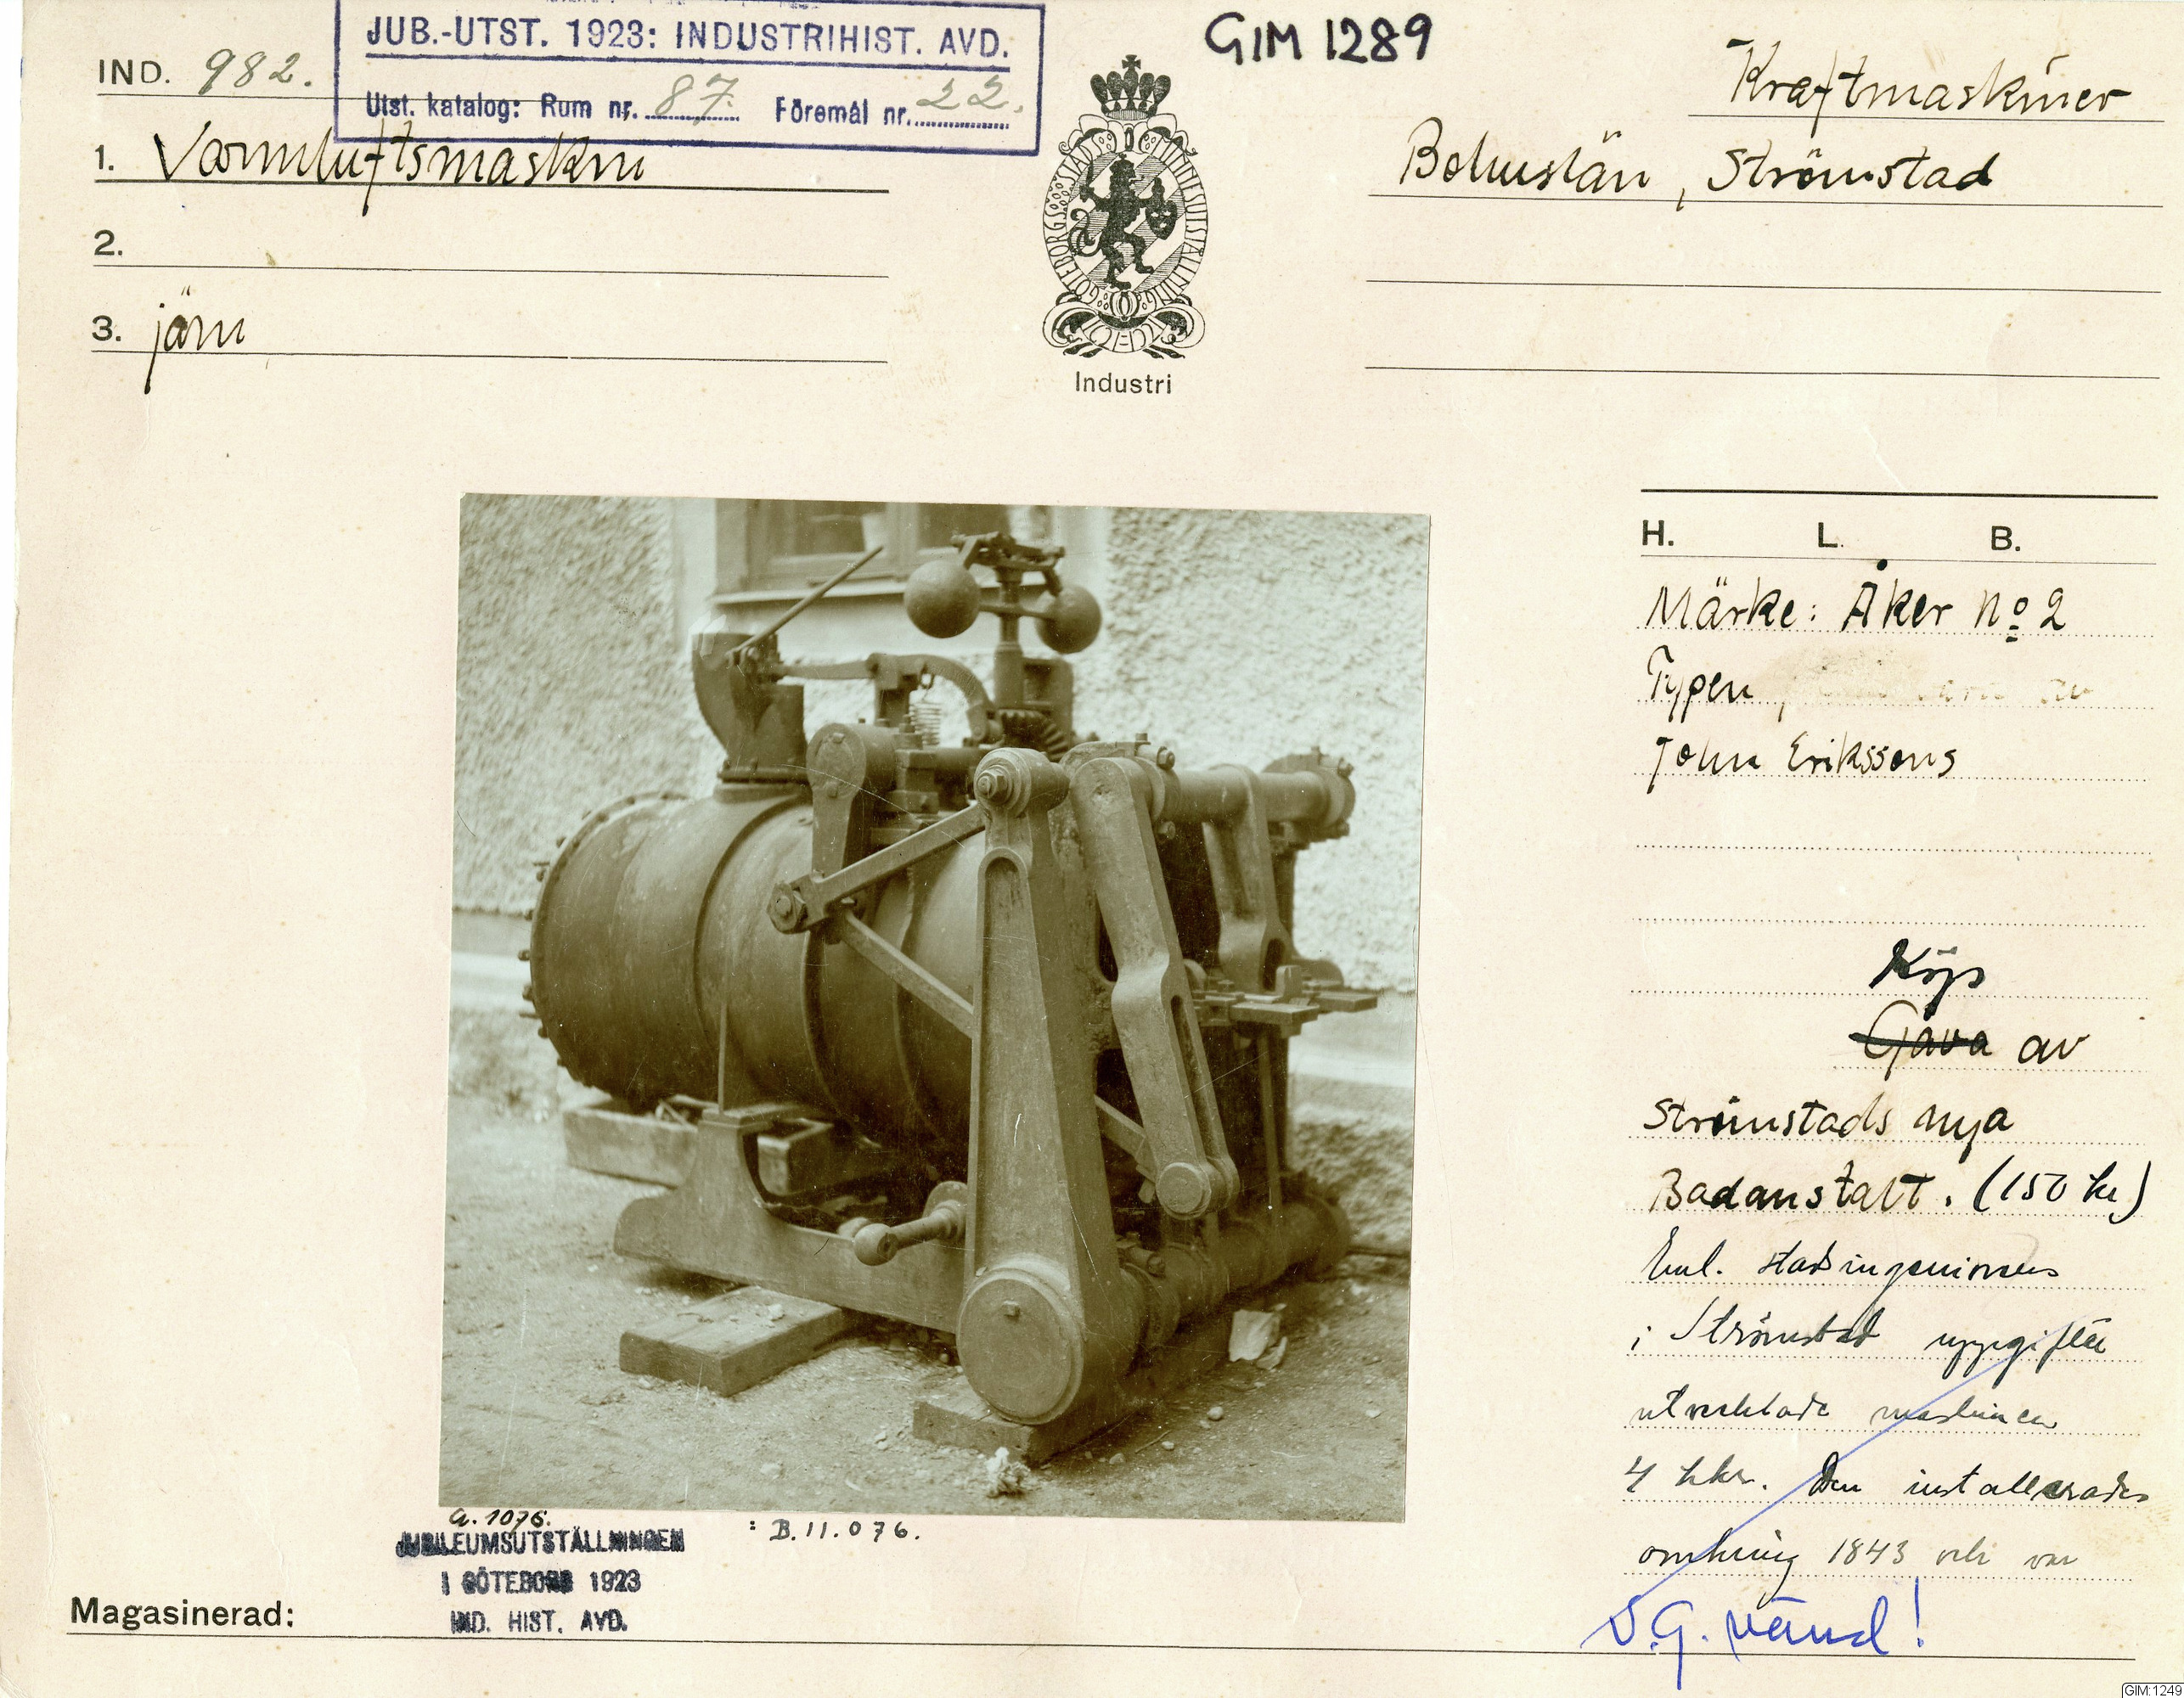 JUB.-UTST. 1923: INDUSTRIHIST. AVD.
Utst. katalog: Rum nr. 87. Föremål nr. 22.
GIM 1289
IND. 982.
Kraftmaskiner
1. Varmluftsmaskin
Bohuslän, Strömstad
2.
3. järn
GÖTEBORGS STADS MINNESUTSTÄLLNING
Industri
H. L. B.
Märke: Åker No 2
Typen
John Erikssons
Köp
Gåva av
Strömstads nya
Badanstalt. (150 kr)
Enl. stadsingeniörens
i Strömstad uppgifter
utvecklade maskinen
4 hkr. Den installerades
omkring 1843 och var
V.G. vänd!
a. 1076.
: B.11.076.
JUBILEUMSUTSTÄLLNINGEN
I GÖTEBORG 1923
IND. HIST. AVD.
Magasinerad:
GIM:1249